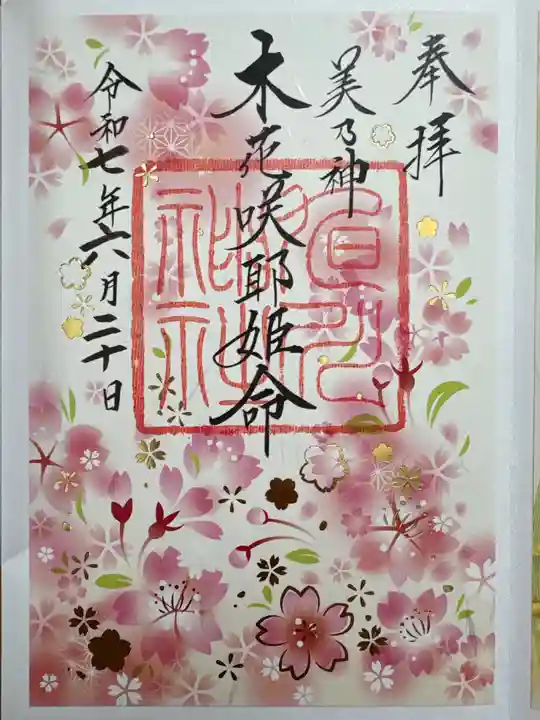 奉拝
美乃神
木花咲耶姫命
令和七年六月二十日